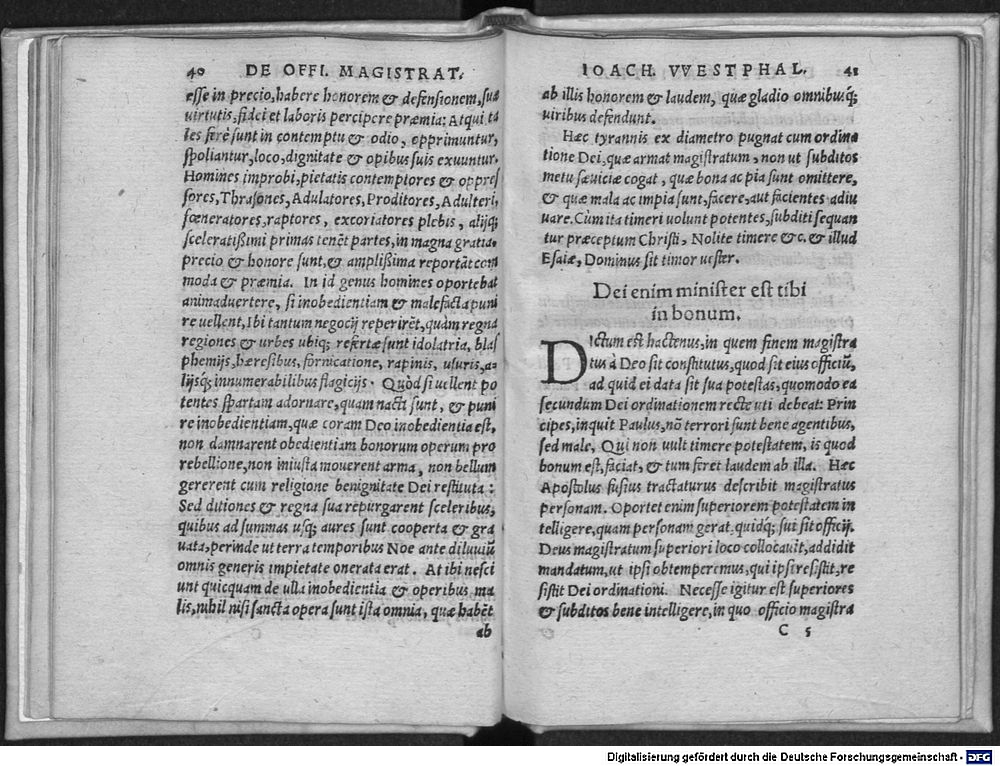 40 DE OFFI. MAGISTRAT.
esse in precio, habere honorem & defensionem, suæ
virtutis, fidei et laboris percipere præmia: Atqui ta
les ferè sunt in contemptu & odio, opprimuntur,
spoliantur, loco, dignitate & opibus suis exuuntur.
Homines improbi, pietatis contemptores & oppres
sores, Thrasones, Adulatores, Proditores, Adulteri,
fœneratores, raptores, excoriatores plebis, alijq;
sceleratißimi primas tenēt partes, in magna gratia,
precio & honore sunt, & amplißima reportāt com
moda & præmia. In id genus homines oportebat
animaduertere, si inobedientiam & malefacta puni
re uellent, Ibi tantum negocij reperirēt, quàm regna
regiones & urbes ubiq; refertæ sunt idolatria, blas
phemijs, hæresibus, fornicatione, rapinis, usuris, a-
lijsq; innumerabilibus flagicijs. Quòd si uellent po
tentes spartam adornare, quam nacti sunt, & puni
re inobedientiam, quæ coram Deo inobedientia est,
non damnarent obedientiam bonorum operum pro
rebellione, non iniusta mouerent arma, non bellum
gererent cum religione benignitate Dei restituta:
Sed ditiones & regna sua repurgarent sceleribus,
quibus ad summas usq; aures sunt cooperta & gra
uata, perinde ut terra temporibus Noe ante diluuiū
omnis generis impietate onerata erat. At ibi nesci
unt quicquam de ulla inobedientia & operibus ma
lis, nihil nisi sancta opera sunt ista omnia, quæ habēt
ab
IOACH. VVESTPHAL. 41
ab illis honorem & laudem, quæ gladio omnibusq;
uiribus defendunt.
Hæc tyrannis ex diametro pugnat cum ordina
tione Dei, quæ armat magistratum, non ut subditos
metu sæuiciæ cogat, quæ bona ac pia sunt omittere,
& quæ mala ac impia sunt, facere, aut facientes adiu
uare. Cùm ita timeri uolunt potentes, subditi sequan
tur præceptum Christi, Nolite timere &c. & illud
Esaiæ, Dominus sit timor uester.
Dei enim minister est tibi
in bonum.
DIctum est hactenus, in quem finem magistra
tus à Deo sit constitutus, quod sit eius officiū,
ad quid ei data sit sua potestas, quomodo ea
secundum Dei ordinationem recte uti debeat: Prin
cipes, inquit Paulus, nō terrori sunt bene agentibus,
sed male, Qui non uult timere potestatem, is quod
bonum est, faciat, & tum feret laudem ab illa. Hæc
Apostolus fusius tractaturus describit magistratus
personam. Oportet enim superiorem potestatem in
telligere, quam personam gerat, quidq; sui sit officij.
Deus magistratum superiori loco collocauit, addidit
mandatum, ut ipsi obtemperemus, qui ipsi resistit, re
sistit Dei ordinationi. Necesse igitur est superiores
& subditos bene intelligere, in quo officio magistra
C 5
Digitalisierung gefördert durch die Deutsche Forschungsgemeinschaft - DFG